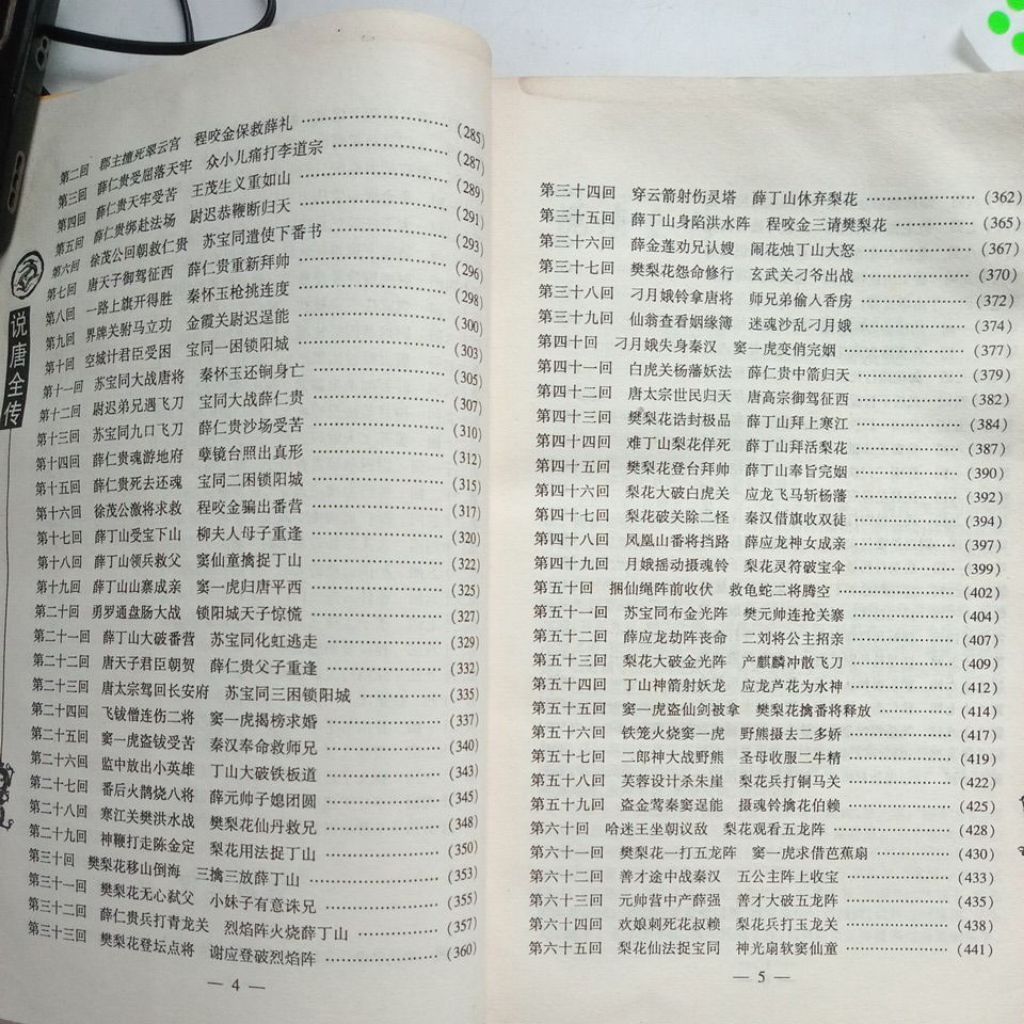 第二回 郡主撞死翠云宫 程咬金保救薛礼 (285)
第三回 薛仁贵受屈落天牢 众小儿痛打李道宗 (287)
第四回 薛仁贵天牢受苦 王茂生义重如山 (289)
第五回 薛仁贵绑赴法场 尉迟恭鞭断归天 (291)
第六回 徐茂公回朝救仁贵 苏宝同遣使下番书 (293)
第七回 唐天子御驾征西 薛仁贵重新拜帅 (296)
第八回 一路上旗开得胜 秦怀玉枪挑连度 (298)
第九回 界牌关驸马立功 金霞关尉迟逞能 (300)
第十回 空城计君臣受困 宝同一困锁阳城 (303)
第十一回 苏宝同大战唐将 秦怀玉还锏身亡 (305)
第十二回 尉迟弟兄遇飞刀 宝同大战薛仁贵 (307)
第十三回 苏宝同九口飞刀 薛仁贵沙场受苦 (310)
第十四回 薛仁贵魂游地府 孽镜台照出真形 (312)
第十五回 薛仁贵死去还魂 宝同二困锁阳城 (315)
第十六回 徐茂公激将求救 程咬金骗出番营 (317)
第十七回 薛丁山受宝下山 柳夫人母子重逢 (320)
第十八回 薛丁山领兵救父 窦仙童擒捉丁山 (322)
第十九回 薛丁山山寨成亲 窦一虎归唐平西 (325)
第二十回 勇罗通盘肠大战 锁阳城天子惊慌 (327)
第二十一回 薛丁山大破番营 苏宝同化虹逃走 (329)
第二十二回 唐天子君臣朝贺 薛仁贵父子重逢 (332)
第二十三回 唐太宗驾回长安府 苏宝同三困锁阳城 (335)
第二十四回 飞钹僧连伤二将 窦一虎揭榜求婚 (337)
第二十五回 窦一虎盗钹受苦 秦汉奉命救师兄 (340)
第二十六回 监中放出小英雄 丁山大破铁板道 (343)
第二十七回 番后火鹊烧八将 薛元帅子媳团圆 (345)
第二十八回 寒江关樊洪水战 樊梨花仙丹救兄 (348)
第二十九回 神鞭打走陈金定 梨花用法捉丁山 (350)
第三十回 樊梨花移山倒海 三擒三放薛丁山 (353)
第三十一回 樊梨花无心弑父 小妹子有意诛兄 (355)
第三十二回 薛仁贵兵打青龙关 烈焰阵火烧薛丁山 (357)
第三十三回 樊梨花登坛点将 谢应登破烈焰阵 (360)
— 4 —
说唐全传
第三十四回 穿云箭射伤灵塔 薛丁山休弃梨花 (362)
第三十五回 薛丁山身陷洪水阵 程咬金三请樊梨花 (365)
第三十六回 薛金莲劝兄认嫂 闹花烛丁山大怒 (367)
第三十七回 樊梨花怨命修行 玄武关刁爷出战 (370)
第三十八回 刁月娥铃拿唐将 师兄弟偷入香房 (372)
第三十九回 仙翁查看姻缘簿 迷魂沙乱刁月娥 (374)
第四十回 刁月娥失身秦汉 窦一虎变俏完姻 (377)
第四十一回 白虎关杨藩妖法 薛仁贵中箭归天 (379)
第四十二回 唐太宗世民归天 唐高宗御驾征西 (382)
第四十三回 樊梨花诰封极品 薛丁山拜上寒江 (384)
第四十四回 难丁山梨花佯死 薛丁山拜活梨花 (387)
第四十五回 樊梨花登台拜帅 薛丁山奉旨完姻 (390)
第四十六回 梨花大破白虎关 应龙飞马斩杨藩 (392)
第四十七回 梨花破关除二怪 秦汉借旗收双徒 (394)
第四十八回 凤凰山番将挡路 薛应龙神女成亲 (397)
第四十九回 月娥摇动摄魂铃 梨花灵符破宝伞 (399)
第五十回 捆仙绳阵前收伏 救龟蛇二将腾空 (402)
第五十一回 苏宝同布金光阵 樊元帅连抢关寨 (404)
第五十二回 薛应龙劫阵丧命 二刘将公主招亲 (407)
第五十三回 梨花大破金光阵 产麒麟冲散飞刀 (409)
第五十四回 丁山神箭射妖龙 应龙芦花为水神 (412)
第五十五回 窦一虎盗仙剑被拿 樊梨花擒番将释放 (414)
第五十六回 铁笼火烧窦一虎 野熊摄去二多娇 (417)
第五十七回 二郎神大战野熊 圣母收服二牛精 (419)
第五十八回 芙蓉设计杀朱崖 梨花兵打铜马关 (422)
第五十九回 盗金莺秦窦逞能 摄魂铃擒花伯赖 (425)
第六十回 哈迷王坐朝议敌 梨花观看五龙阵 (428)
第六十一回 樊梨花一打五龙阵 窦一虎求借芭蕉扇 (430)
第六十二回 善才途中战秦汉 五公主阵上收宝 (433)
第六十三回 元帅营中产薛强 善才大破五龙阵 (435)
第六十四回 欢娘刺死花叔赖 梨花兵打玉龙关 (438)
第六十五回 梨花仙法捉宝同 神光扇软窦仙童 (441)
— 5 —